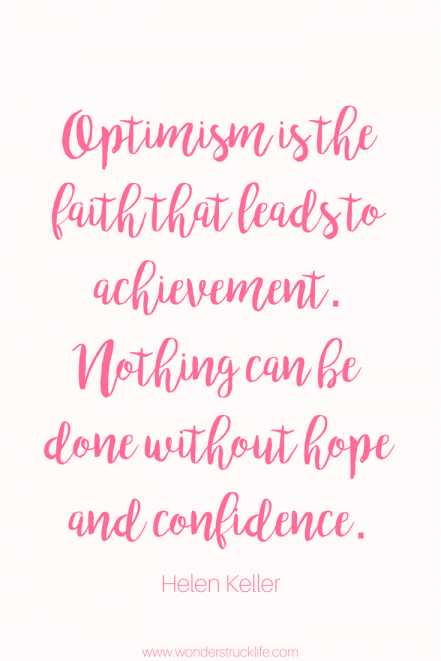 Optimism is the
faith that leads to
achievement.
Nothing can be
done without hope
and confidence.
Helen Keller
www.wonderstrucklife.com